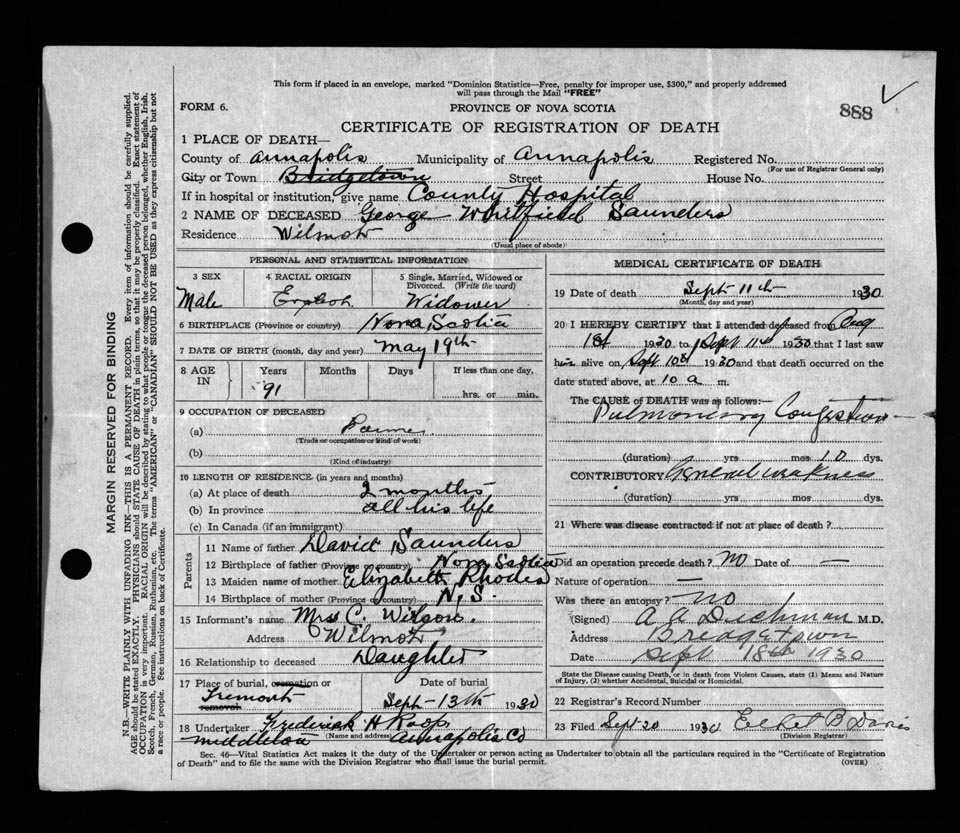 This form if placed in an envelope, marked "Dominion Statistics—Free, penalty for improper use, $300," and properly addressed
will pass through the Mail "FREE"
FORM 6.
PROVINCE OF NOVA SCOTIA
888
CERTIFICATE OF REGISTRATION OF DEATH
1 PLACE OF DEATH—
County of Annapolis Municipality of Annapolis Registered No.
(For use of Registrar General only)
City or Town Bridgetown Street House No.
If in hospital or institution, give name County Hospital
2 NAME OF DECEASED George Whitfield Saunders
Residence Wilmot
(Usual place of abode)
PERSONAL AND STATISTICAL INFORMATION
3 SEX 4 RACIAL ORIGIN 5 Single, Married, Widowed or
Divorced. (Write the word)
Male English Widower
6 BIRTHPLACE (Province or country) Nova Scotia
7 DATE OF BIRTH (month, day and year) May 19th
8 AGE IN Years Months Days If less than one day,
91 hrs. or min.
9 OCCUPATION OF DECEASED
(a) Farmer
(Trade or occupation or kind of work)
(b)
(Kind of industry)
10 LENGTH OF RESIDENCE (in years and months)
(a) At place of death 2 months
(b) In province all his life
(c) In Canada (if an immigrant)
Parents
11 Name of father David Saunders
12 Birthplace of father (Province or country) Nova Scotia
13 Maiden name of mother Elizabeth Rhodes
14 Birthplace of mother (Province or country) N.S.
15 Informant's name Mrs C. Wilson
Address Wilmot
16 Relationship to deceased Daughter
17 Place of burial, cremation or removal Date of burial
Tremont Sept-13th 1930
18 Undertaker Frederick H Roop
(Name and address)
Middleton Annapolis Co
MEDICAL CERTIFICATE OF DEATH
19 Date of death Sept 11th 1930
(Month, day and year)
20 I HEREBY CERTIFY that I attended deceased from Aug
1st 1930 to Sept 11th 1930 that I last saw
him alive on Sept 10th 1930 and that death occurred on the
date stated above, at 10 a m.
The CAUSE of DEATH was as follows:
Pulmonary Congestion
(duration) yrs mos 10 dys.
CONTRIBUTORY General weakness
(duration) yrs mos dys.
21 Where was disease contracted if not at place of death?
Did an operation precede death? No Date of —
Nature of operation —
Was there an autopsy? No
(Signed) A A Dechman M.D.
Address Bridgetown
Date Sept 18th 1930
State the Disease causing Death, or in death from Violent Causes, state (1) Means and Nature
of Injury, (2) whether Accidental, Suicidal or Homicidal.
22 Registrar's Record Number
23 Filed Sept 20 1930 Ethel B Davis
(Division Registrar)
Sec. 46—Vital Statistics Act makes it the duty of the Undertaker or person acting as Undertaker to obtain all the particulars required in the "Certificate of Registration
of Death" and to file the same with the Division Registrar who shall issue the burial permit.
(OVER)
MARGIN RESERVED FOR BINDING
N.B.—WRITE PLAINLY WITH UNFADING INK—THIS IS A PERMANENT RECORD. Every item of information should be carefully supplied.
AGE should be stated EXACTLY. PHYSICIANS should STATE CAUSE OF DEATH in plain terms, so that it may be properly classified. Exact statement of
OCCUPATION is very important. RACIAL ORIGIN will be described by stating to what people or tongue the deceased person belonged, whether English, Irish,
Scotch, French, German, Russian, Ruthenian, etc. The terms "AMERICAN" or "CANADIAN" SHOULD NOT BE USED as they express citizenship but not
a race or people. See instructions on back of Certificate.